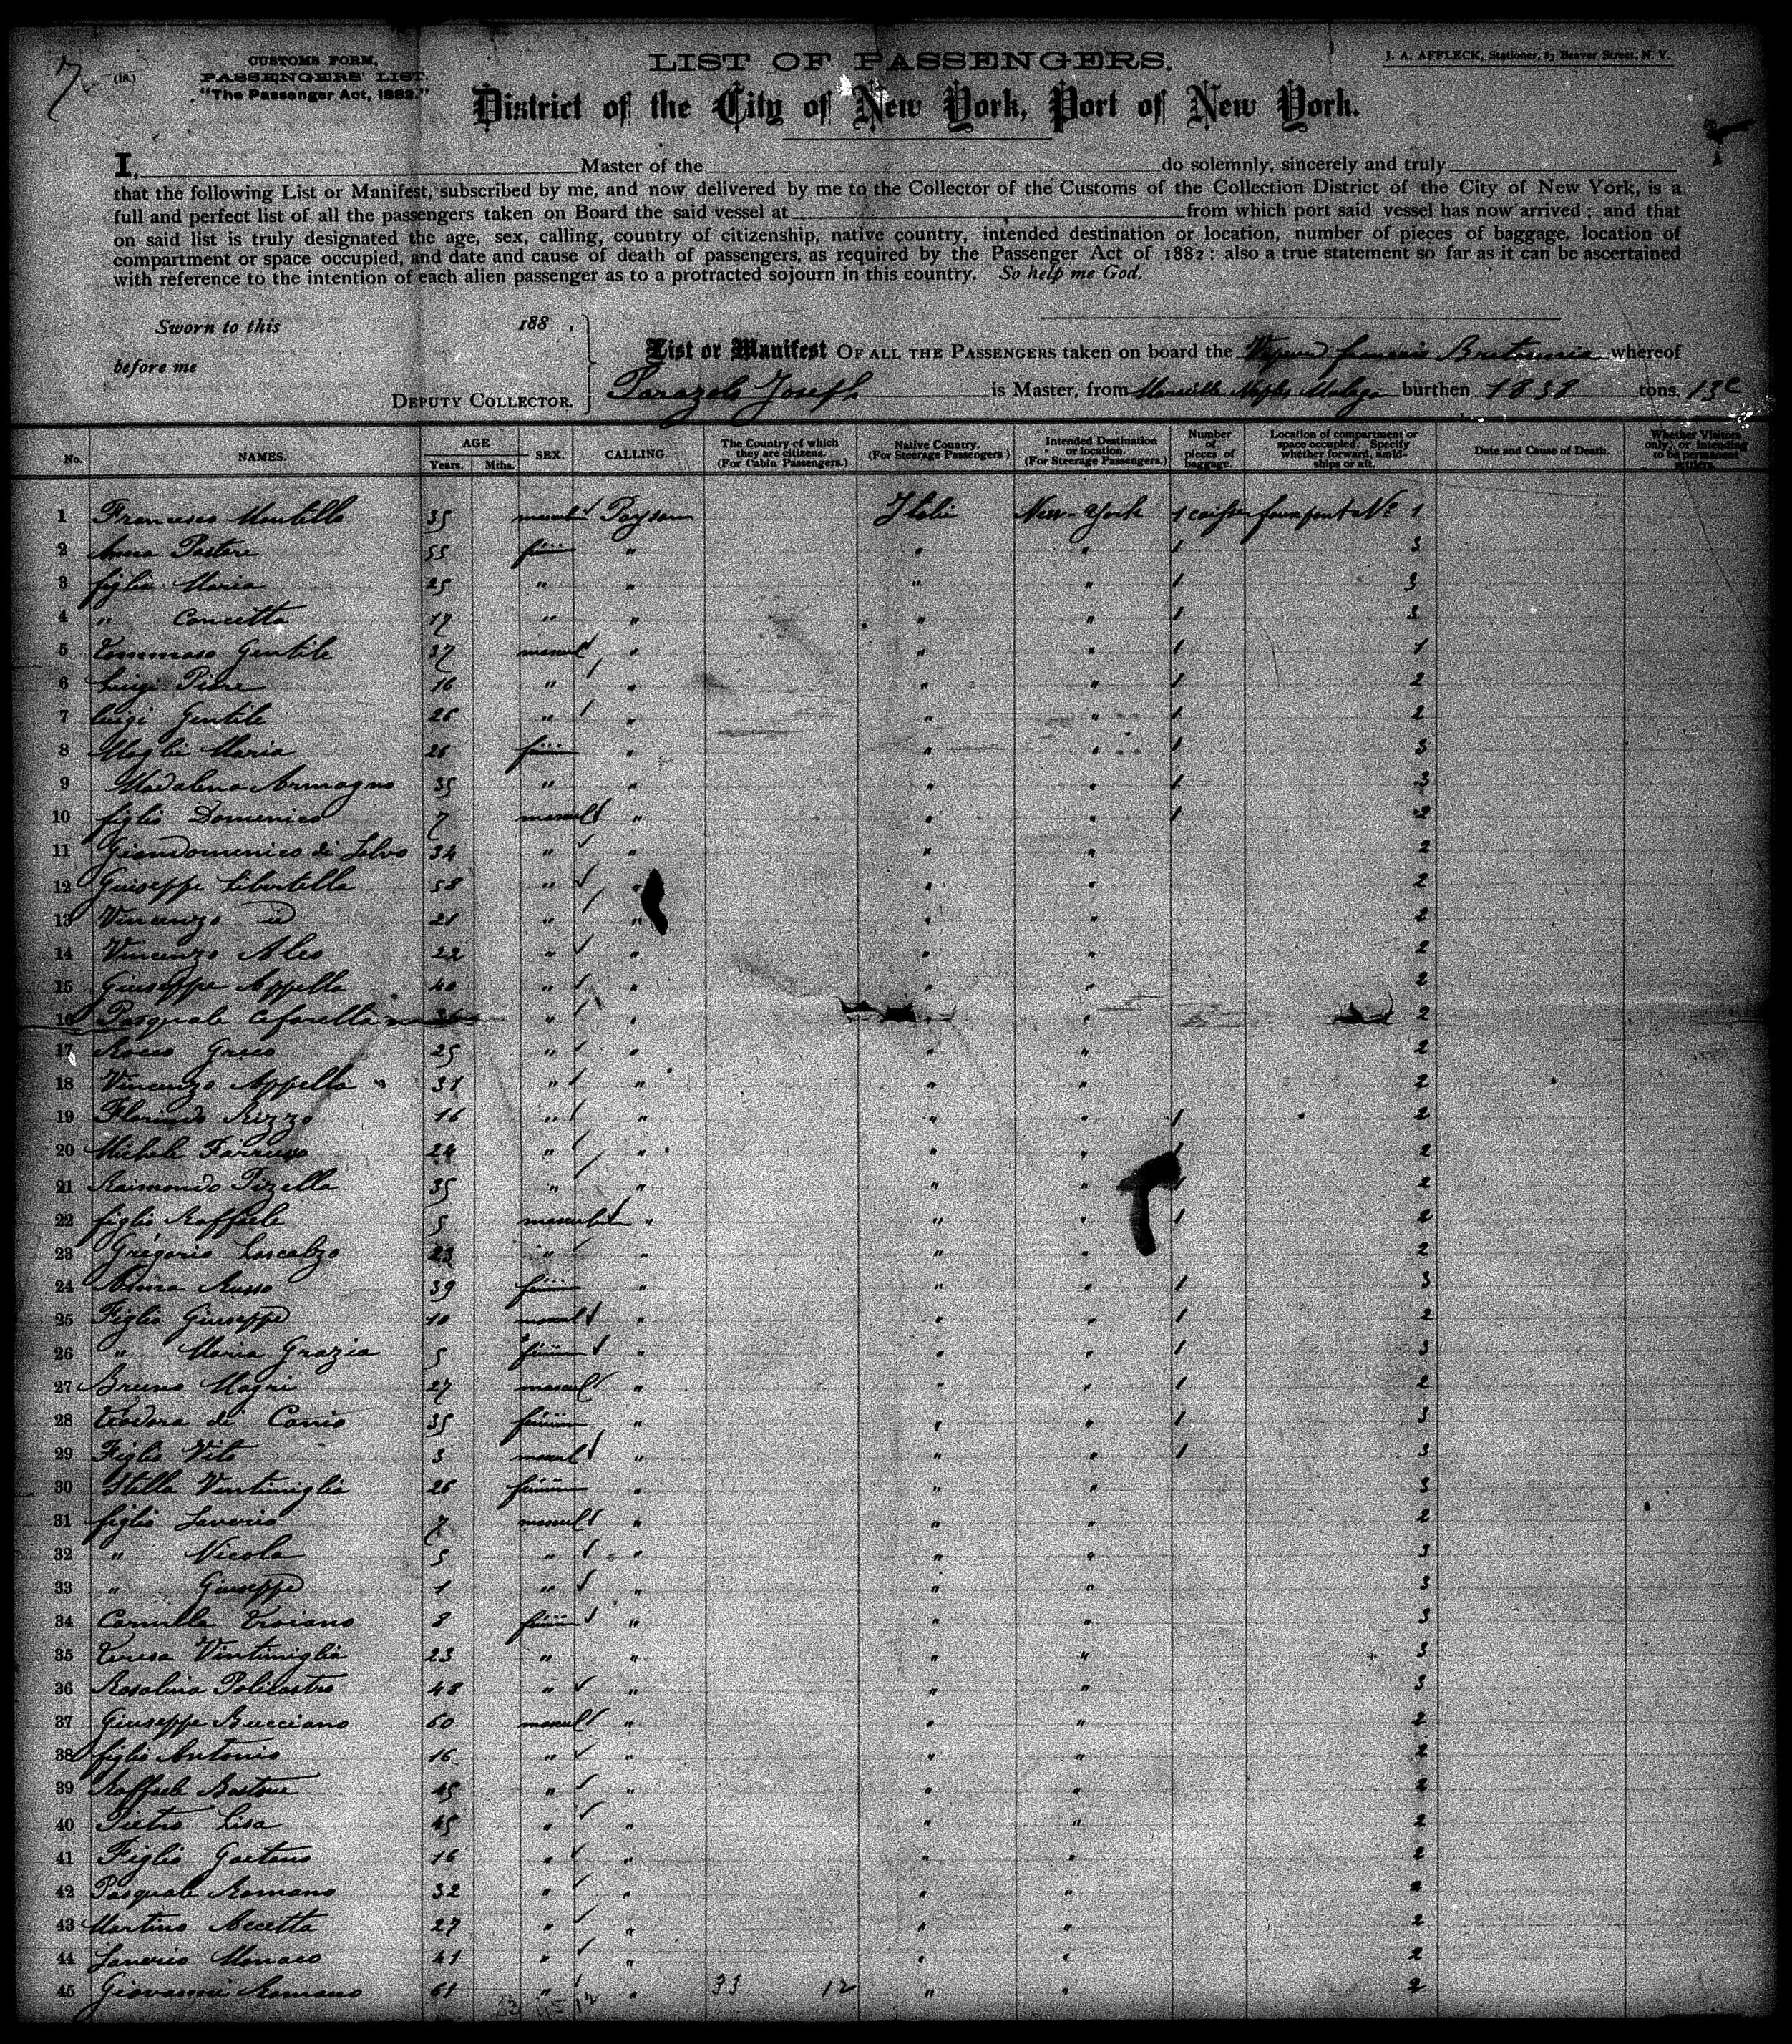 7
(18.)
CUSTOMS FORM,
PASSENGERS' LIST.
"The Passenger Act, 1882."
LIST OF PASSENGERS.
J. A. AFFLECK, Stationer, 83 Beaver Street, N. Y.
District of the City of New York, Port of New York.
I, Master of the do solemnly, sincerely and truly
that the following List or Manifest, subscribed by me, and now delivered by me to the Collector of the Customs of the Collection District of the City of New York, is a
full and perfect list of all the passengers taken on Board the said vessel at from which port said vessel has now arrived; and that
on said list is truly designated the age, sex, calling, country of citizenship, native country, intended destination or location, number of pieces of baggage, location of
compartment or space occupied, and date and cause of death of passengers, as required by the Passenger Act of 1882: also a true statement so far as it can be ascertained
with reference to the intention of each alien passenger as to a protracted sojourn in this country. So help me God.
Sworn to this 188 ,
before me
DEPUTY COLLECTOR.
List or Manifest OF ALL THE PASSENGERS taken on board the Vapeur français Britannia whereof
Joseph is Master, from Marseille Naples Malaga burthen 1838 tons.
No. NAMES. AGE Years. Mths. SEX. CALLING. The Country of which they are citizens. (For Cabin Passengers.) Native Country. (For Steerage Passengers) Intended Destination or location. (For Steerage Passengers.) Number of pieces of baggage. Location of compartment or space occupied. Specify whether forward, amidships or aft. Date and Cause of Death. Whether Visitors only, or intending to be permanent settlers.
1 Francesco Montillo 35 Paysan Italie New-York 1 1
2 Anna Pastore 55 " " " 1 3
3 figlia Maria 25 " " " " 1 3
4 " Concetta 17 " " " " 1 3
5 Tommaso Gentile 37 mascul " " " 1 1
6 Luigi 16 " " " " 1 2
7 Luigi Gentile 26 " " " " 1 2
8 Moglie Maria 26 " " " 1 3
9 Madalena Armagno 35 " " " " 1 3
10 figlio Domenico 7 mascul " " " 1 2
11 Giandomenico di Salvo 34 " " " " 2
12 Giuseppe Libertella 58 " " " " 2
13 Vincenzo id 21 " " " " 2
14 Vincenzo Aleo 22 " " " " 2
15 Giuseppe Appella 40 " " " " 2
16 Pasquale Cefarella " " " " 2
17 Rocco Greco 25 " " " " 2
18 Vincenzo Appella 31 " " " " 2
19 Florindo Rizzo 16 " " " " 1 2
20 Michele 24 " " " " 1 2
21 Raimondo Pizella 35 " " " " 1 2
22 figlio Raffaele 5 " " " 1 2
23 Gregorio Loscalzo 23 " " " " 2
24 Anna Russo 39 " " " 1 3
25 Figlio Giuseppe 10 mascul " " " 1 2
26 " Maria Grazia 5 " " " 1 3
27 Bruno Magri 27 mascul " " " 1 2
28 Teodora di Canio 35 " " " 1 3
29 Figlio Vito 3 mascul " " " 1 3
30 Stella Ventimiglia 26 " " " 3
31 figlio Saverio 7 mascul " " " 2
32 " Nicola 5 " " " " 3
33 " Giuseppe 1 " " " " 3
34 Carmella Troiano 8 " " " 3
35 Teresa Vintimiglia 23 " " " " 3
36 Rosalina Policastro 48 " " " " 3
37 Giuseppe Bucciano 60 mascul " " " 2
38 figlio Antonio 16 " " " " 2
39 Raffaele 45 " " " " 2
40 Pietro Lisa 45 " " " " 2
41 Figlio Gaetano 16 " " " " 2
42 Pasquale Romano 32 " " " " 2
43 Martino Accetta 27 " " " " 2
44 Saverio Monaco 41 " " " " 2
45 Giovanni Romano 61 " " " " 2
33 12
33 45 12